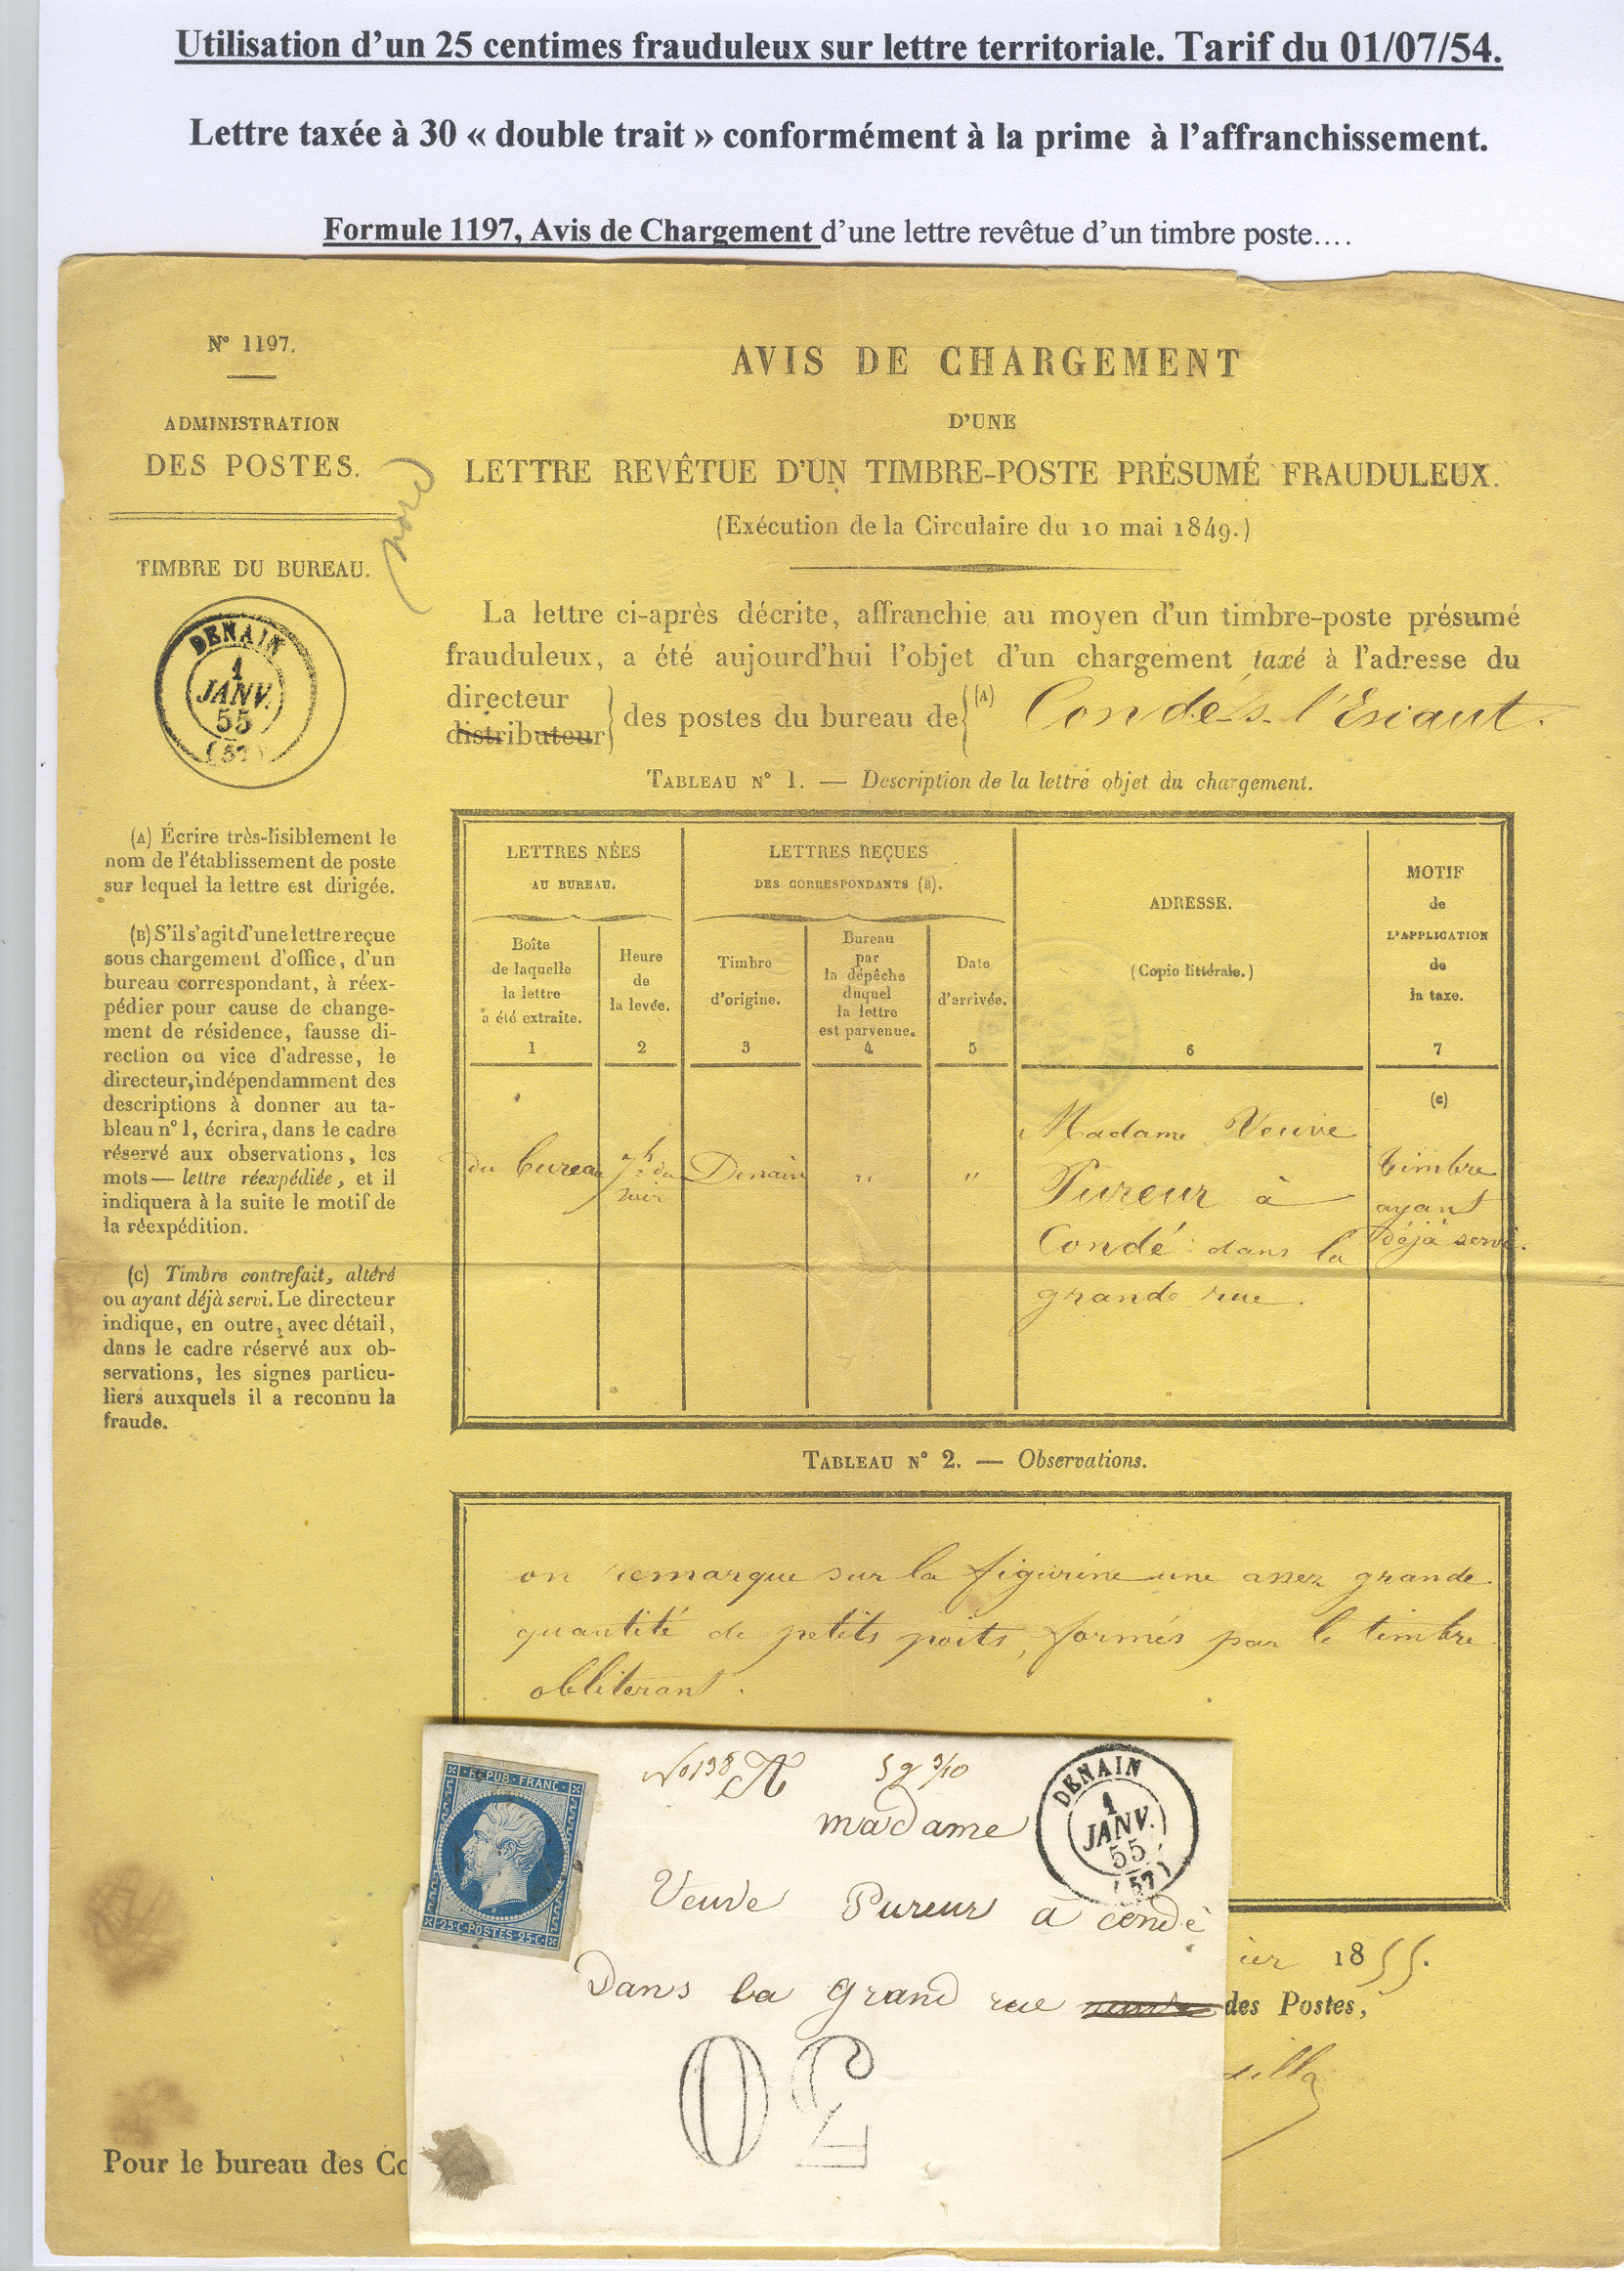 Utilisation d’un 25 centimes frauduleux sur lettre territoriale. Tarif du 01/07/54.
Lettre taxée à 30 « double trait » conformément à la prime à l’affranchissement.
Formule 1197, Avis de Chargement d’une lettre revêtue d’un timbre poste….
N° 1197.
ADMINISTRATION
DES POSTES.
nord
TIMBRE DU BUREAU.
DENAIN
1
JANV.
55
(57)
(A) Écrire très-lisiblement le
nom de l'établissement de poste
sur lequel la lettre est dirigée.
(B) S'il s'agit d'une lettre reçue
sous chargement d'office, d'un
bureau correspondant, à réex-
pédier pour cause de change-
ment de résidence, fausse di-
rection ou vice d'adresse, le
directeur, indépendamment des
descriptions à donner au ta-
bleau n° 1, écrira, dans le cadre
réservé aux observations, les
mots — lettre réexpédiée, et il
indiquera à la suite le motif de
la réexpédition.
(C) Timbre contrefait, altéré
ou ayant déjà servi. Le directeur
indique, en outre, avec détail,
dans le cadre réservé aux ob-
servations, les signes particu-
liers auxquels il a reconnu la
fraude.
AVIS DE CHARGEMENT
D'UNE
LETTRE REVÊTUE D'UN TIMBRE-POSTE PRÉSUMÉ FRAUDULEUX.
(Exécution de la Circulaire du 10 mai 1849.)
La lettre ci-après décrite, affranchie au moyen d'un timbre-poste présumé
frauduleux, a été aujourd'hui l'objet d'un chargement taxé à l'adresse du
directeur
distributeur
des postes du bureau de (A) Condé s. l'Escaut.
TABLEAU N° 1. — Description de la lettre objet du chargement.
LETTRES NÉES
AU BUREAU.
LETTRES REÇUES
DES CORRESPONDANTS (B).
ADRESSE.
(Copie littérale.)
6
MOTIF
de
L'APPLICATION
de
la taxe.
7
Boîte
de laquelle
la lettre
a été extraite.
1
Heure
de
la levée.
2
Timbre
d'origine.
3
Bureau
par
la dépêche
duquel
la lettre
est parvenue.
4
Date
d'arrivée.
5
du bureau
7h du
soir
Denain
"
"
Madame Veuve
Pureur à
Condé dans la
grande rue.
(c)
timbre
ayant
déjà servi.
TABLEAU N° 2. — Observations.
on remarque sur la figurine une assez grande
quantité de petits points, formés par le timbre
obliterant.
REPUB. FRANC.
25.C.POSTES.25.C.
N° 138
5 g 3/10
DENAIN
1
JANV.
55
(57)
madame
Veuve Pureur a condé
Dans la grand rue
30
ier 1855.
des Postes,
Pour le bureau des Co